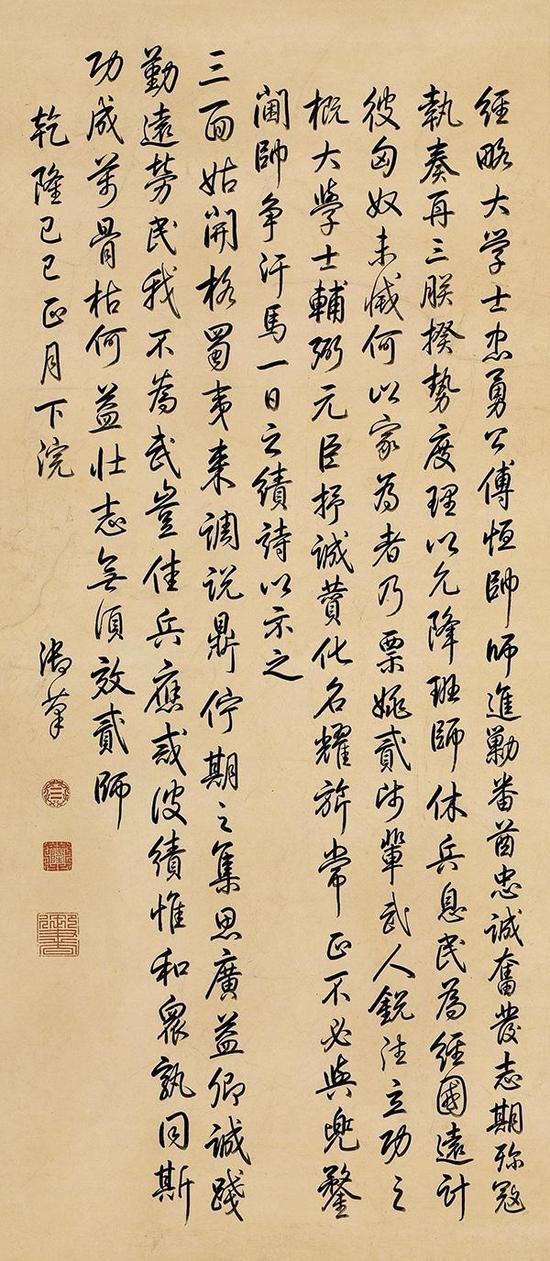 經略大学士忠勇公傅恒帥師進勦番酋忠誠奮發志期殄寇
執奏再三朕揆勢度理以允降班師休兵息民為經國遠計
彼匈奴未滅何以家為者乃票姚貳師輩武人銳往立功之
概大學士輔弼元臣抒誠贊化名耀旂常正不必與兜鍪
閫帥争汗馬一日之績詩以示之
三面姑開格蜀夷來調說鼎佇期之集思廣益卿誠踐
勤遠勞民我不為武豈佳兵應戒彼績惟和眾孰同斯
功成萬骨枯何益壮志無須效貳師
乾隆己巳正月下浣 御筆